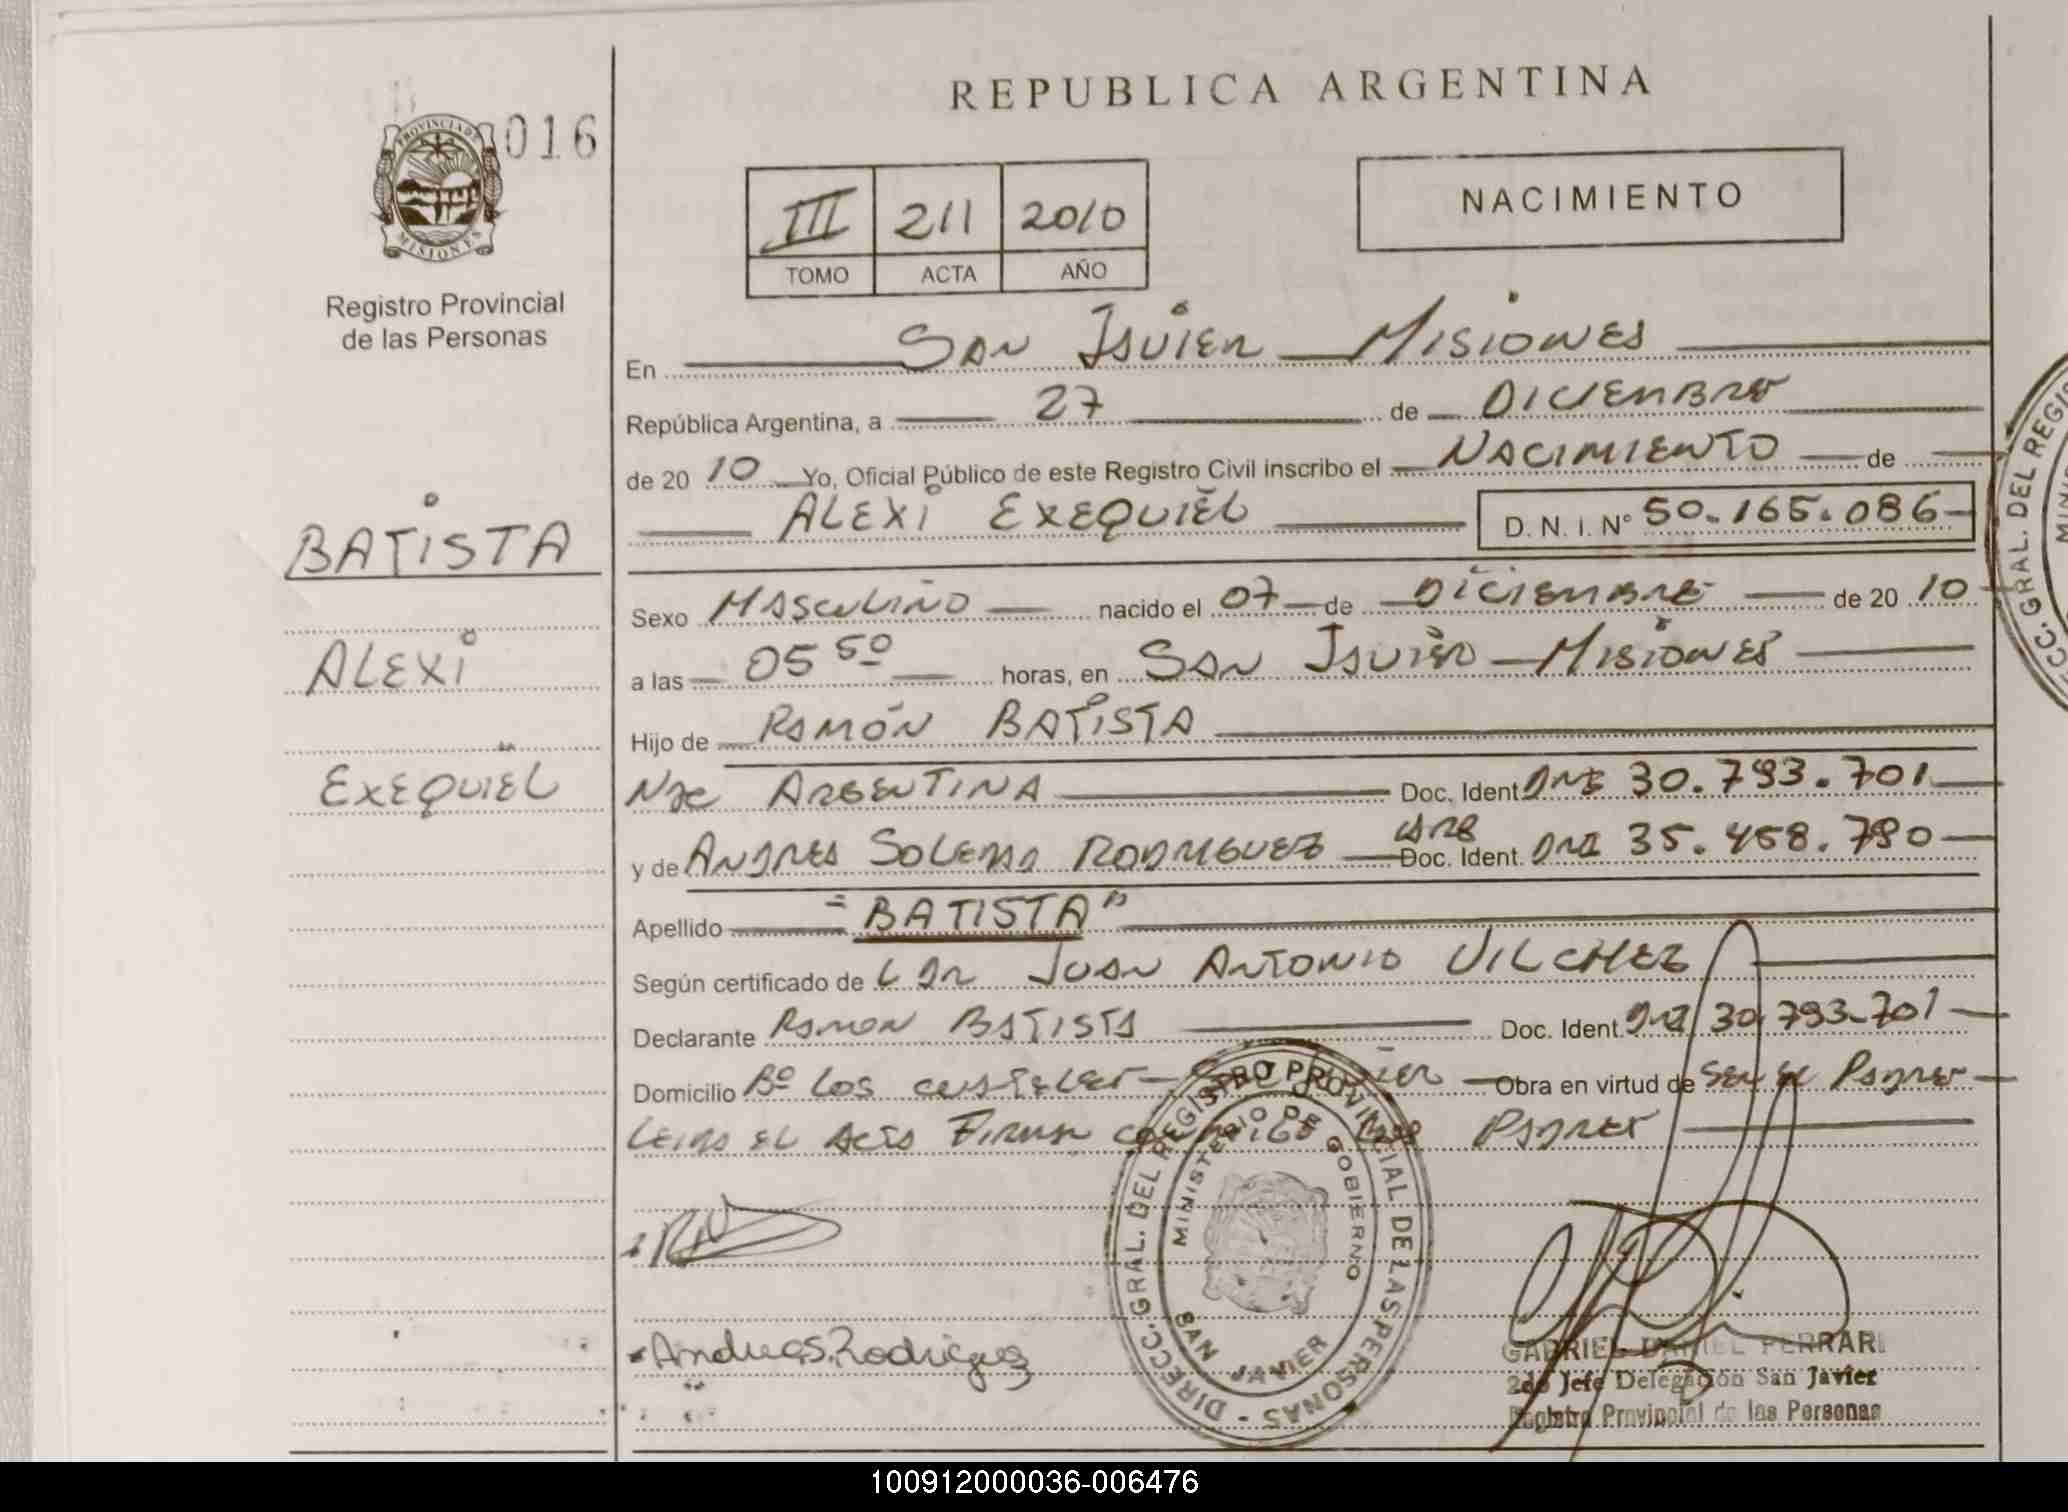 REPUBLICA ARGENTINA
016
PROVINCIA DE
MISIONES
Registro Provincial
de las Personas
III 211 2010
TOMO ACTA AÑO
NACIMIENTO
En SAN JAVIER MISIONES
República Argentina, a 27 de DICIEMBRE
de 20 10 Yo, Oficial Público de este Registro Civil inscribo el NACIMIENTO de
ALEXI EXEQUIEL D. N. I. N° 50.165.086
BATISTA
ALEXI
EXEQUIEL
Sexo MASCULINO nacido el 07 de DICIEMBRE de 20 10
a las 05 50 horas, en SAN JAVIER MISIONES
Hijo de RAMÓN BATISTA
Nac ARGENTINA Doc. Ident. DNI 30.793.701
y de ANDREA SOLEDAD RODRIGUEZ ARG Doc. Ident. DNI 35.458.790
Apellido "BATISTA"
Según certificado de DR JUAN ANTONIO VILCHEZ
Declarante RAMON BATISTA Doc. Ident. DNI 30.793.701
Domicilio Bº LOS Obra en virtud de SER EL PADRE
LEIDA EL ACTA FIRMAN CONMIGO LOS PADRES
Andrea S. Rodriguez
DIRECC. GRAL. DEL REGISTRO PROVINCIAL DE LAS PERSONAS
MINISTERIO DE GOBIERNO
SAN JAVIER
GABRIEL DANIEL FERRARI
2do Jefe Delegación San Javier
Registro Provincial de las Personas
CC. GRAL. DEL REGIS
100912000036-006476